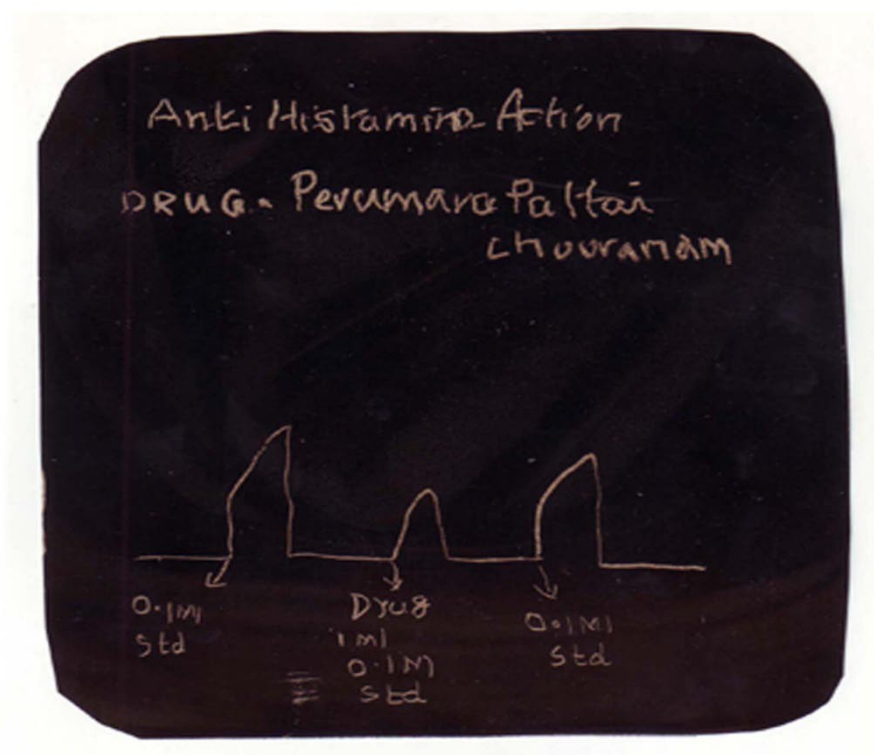 Anti Histamine Action
DRUG - Perumara Pattai
Chooranam
0.1Ml
Std
Drug
1 ml
0.1Ml
Std
0.1Ml
Std